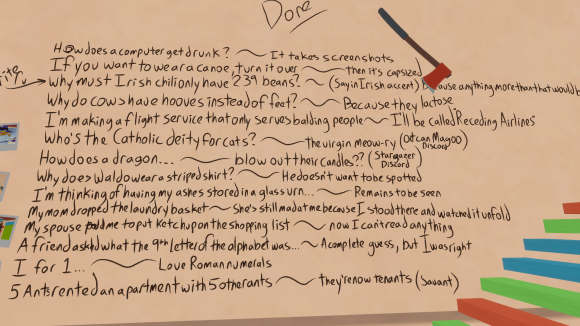 Done
How does a computer get drunk? It takes screenshots
If you want to wear a canoe, turn it over then it's capsized
Why must Irish chili only have 239 beans? (Say in Irish accent) because anything more than that would b
Why do cows have hooves instead of feet? Because they lactose
I'm making a flight service that only serves balding people I'll be called Receding Airlines
Who's the Catholic deity for cats? The virgin meow-ry (OatcanMagoo Discord)
How does a dragon... blow out their candles?? (Stargazer Discord)
Why does waldo wear a striped shirt? He doesn't want to be spotted
I'm thinking of having my ashes stored in a glass urn... Remains to be seen
My mom dropped the laundry basket She's still mad at me because I stood there and watched it unfold
My spouse told me to put ketchup on the shopping list now I can't read anything
A friend asked what the 9th letter of the alphabet was... A complete guess, but I was right
I for 1... Love Roman numerals
5 Ants rented an apartment with 5 other ants they're now tenants (Savant)